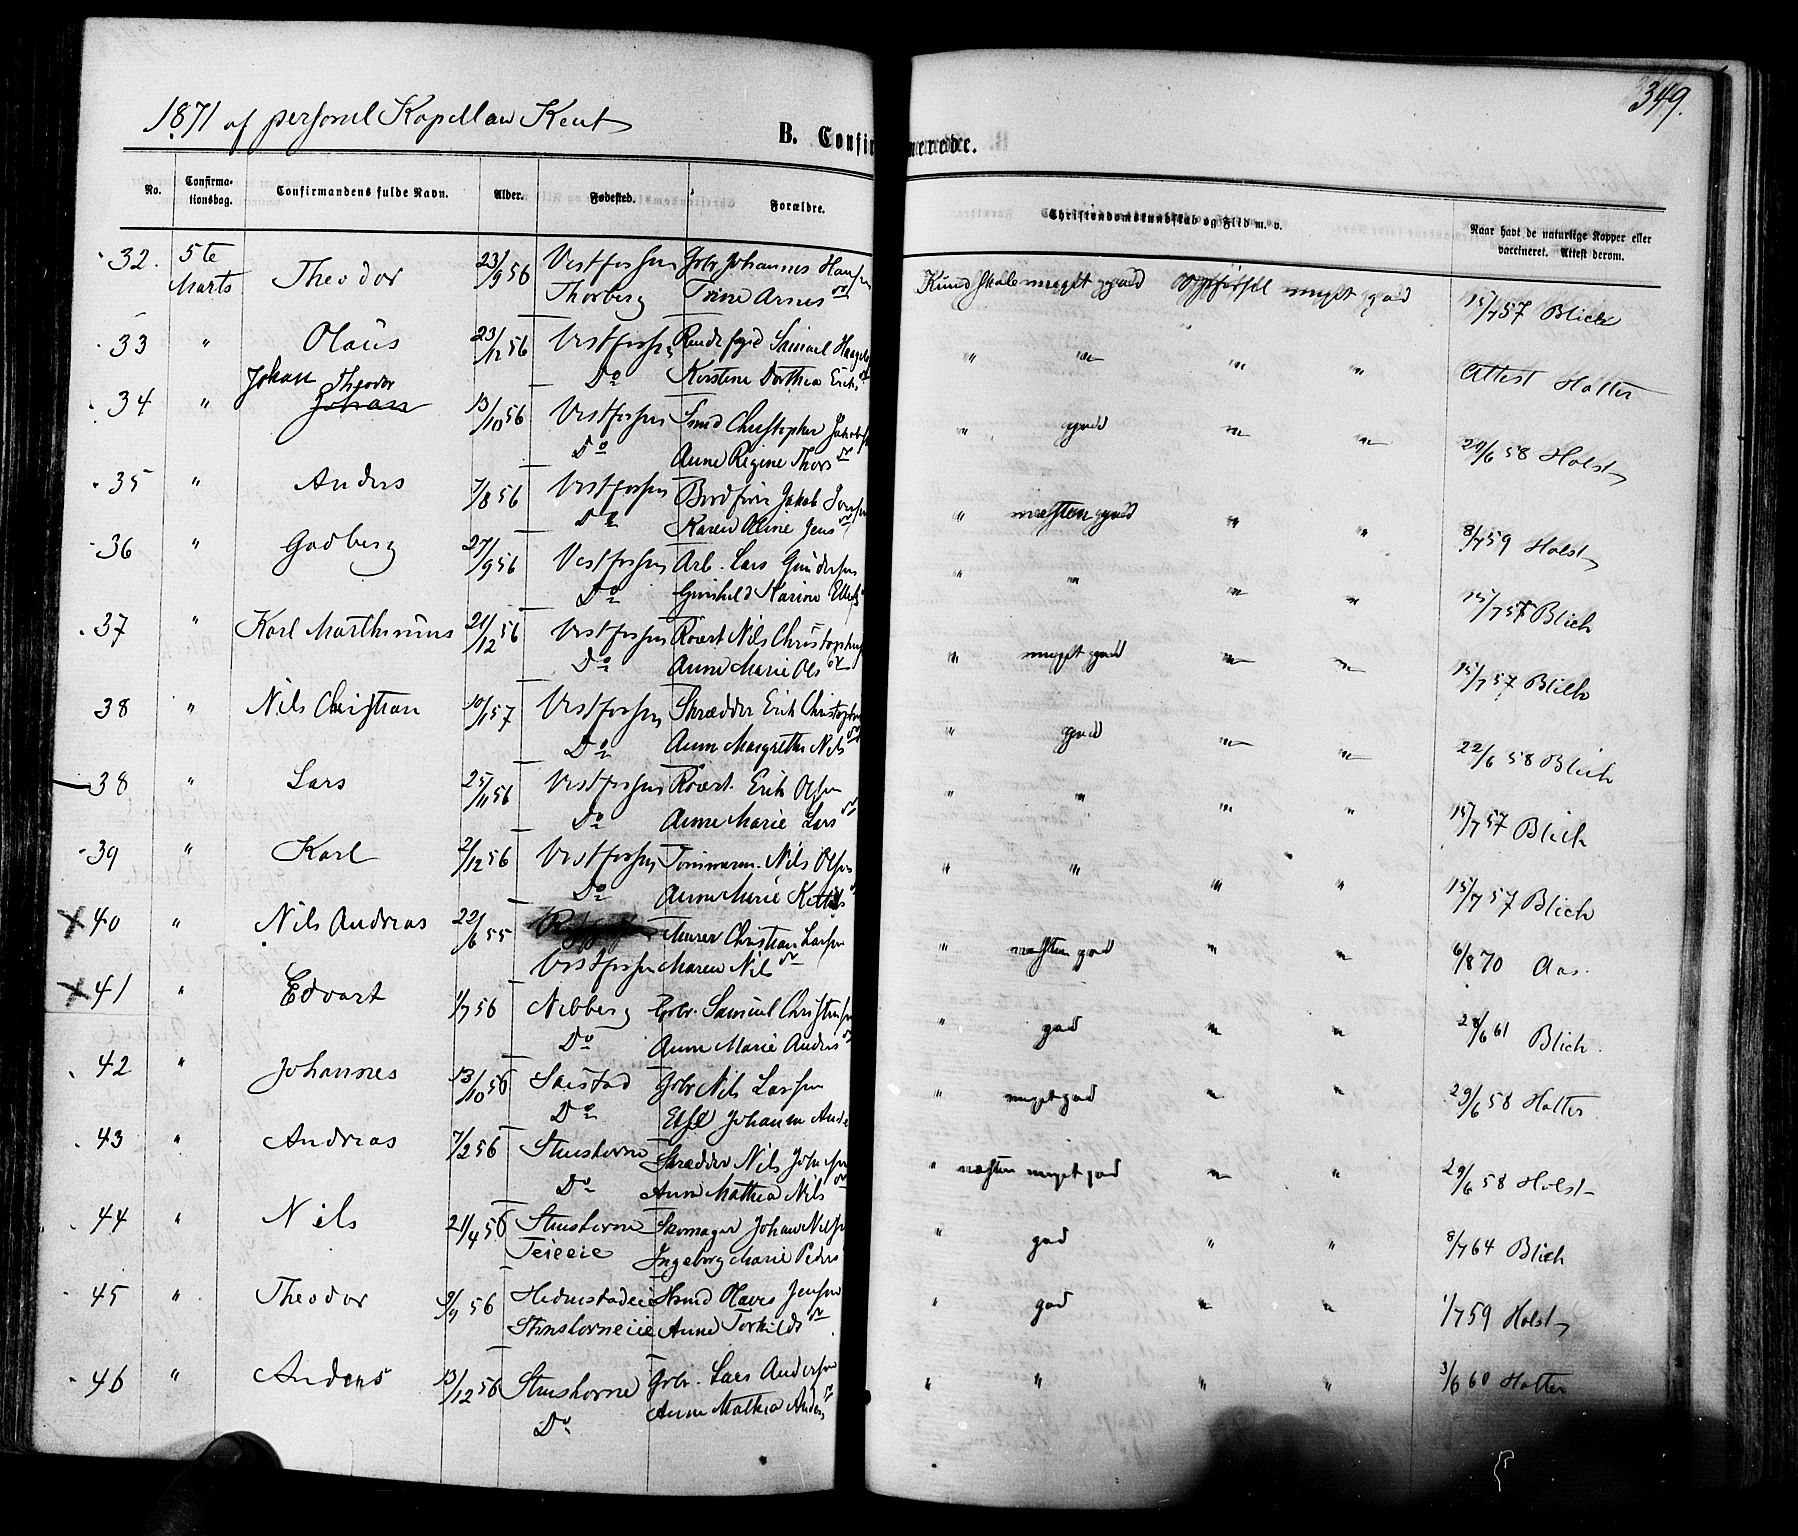 349.
1871 af personel Kapellan Kent
B. Confirmerede.
No. Confirmationsdag. Confirmandens fulde Navn. Alder. Fødested. Forældre. Christendomskundskab og Flid m. v. Naar havt de naturlige Kopper eller vaccineret. Attest derom.
32. 5te Marts Theodor 23/9 56 Vestfossen Grbr Johannes Hans Kundskab meget god Opførsel meget god 15/7 57 Blich
Thorberg Trine Arnes
33 " Olaus 23/12 56 Vestfossen Samuel " " " " Attest Holter
Do Kerstine Dorthea Erichs
Johan Theodor
34 " Johan 13/10 56 Vestfossen Smed Christopher Jakobs " god " " 29/6 58 Holst
Do Anne Regine Thors
35 " Anders 7/8 56 Vestfossen Jakob " næsten god " " 8/7 59 Holst
Do Karen Oline Jens
36 " Godberg 27/9 56 Vestfossen Arb. Lars Gundersen " " " " 15/7 57 Blich
Do Gunhild Karine
37 " Karl Marthinius 21/12 56 Vestfossen Roert Nils Christophers " meget god " " 15/7 57 Blich
Do Anne Marie Ols
38 " Nils Christian 10/1 57 Vestfossen Skrædder Erik Christophers " god " " 22/6 58 Blich
Do Anne Margrethe Nils
38 " Lars 25/11 56 Vestfossen Roert. Erik Olsen " " " " 15/7 57 Blich
Do Anne Marie Lars
39 " Karl 2/12 56 Vestfossen Tømmerm. Nils Olsen " " " " 15/7 57 Blich
Do Anne Marie Kittils
X 40 " Nils Andreas 22/6 55 Murer Christian Larsen " næsten god " " 6/8 70 Aas.
Vestfossen Maren Nils
X 41 " Edvart 1/7 56 Nebberg Grbr. Samuel Christensen " god " " 28/6 61 Blich.
Do Anne Marie Anders
42 " Johannes 13/10 56 Saestad Grbr Nils Larsen " meget god " " 29/6 58 Holter
Do Else Johanne Ande
43 " Andreas 7/2 56 Stenshorne Skrædder Nils Johnsen " næsten meget god " " 29/6 58 Holst
Do Anne Mathea Nils
44 " Nils 21/4 56 Stenshorne Skomager Johan Nilsen " god " " 8/7 64 Blich
Teieeie Ingeborg Marie Peders
45 " Theodor 9/9 56 Hedenstadeie Smed Olaves Jensen " god " " 1/7 59 Holst
Stenshorneeie Anne Torkilds
46 " Anders 13/12 56 Stenshorne Grbr. Lars Andersen " " " " 3/6 60 Holter
Do Anne Mathea Anders